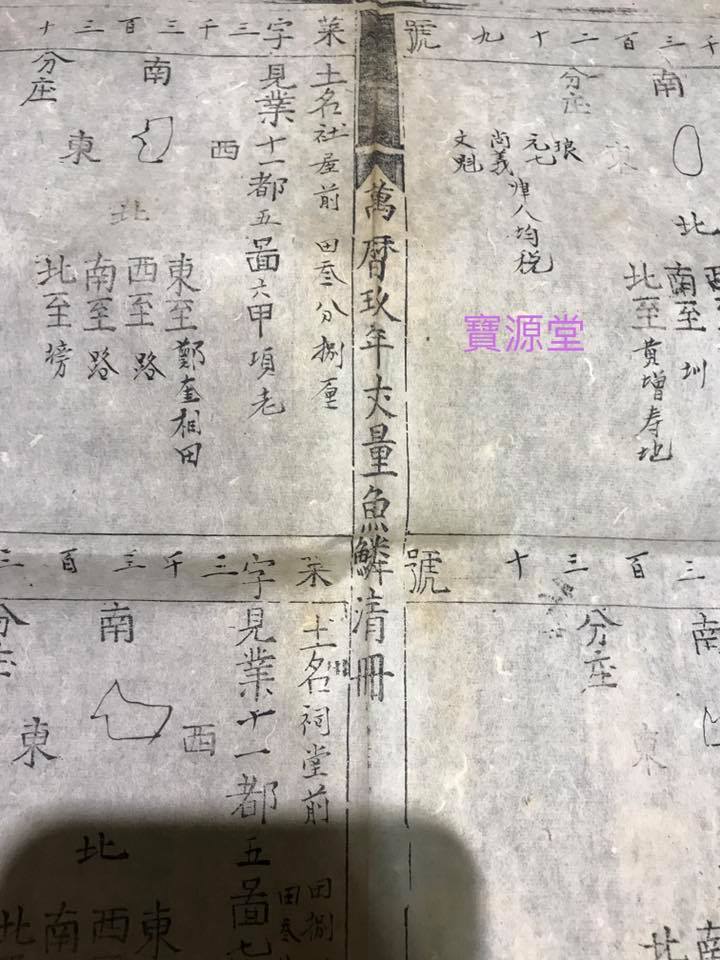 號
九十二百三千
南
分庄
東
北
南至圳
北至黃增寿地
琅
元七
尚義
文魁
律八均税
寶源堂
萬曆玖年丈量魚鱗清冊
菜字三千三百三十
土名社屋前
田叁分捌厘
見業十一都五啚六甲項老
南
分庄
西
東
北
東至鄭奎相田
西至路
南至路
北至塝
號
十三百三
分庄
南
東
南
北
菜字三千三百三
土名祠堂前
田捌
田叁
見業十一都五啚七
南
分庄
西
東
北
東
西
南
北